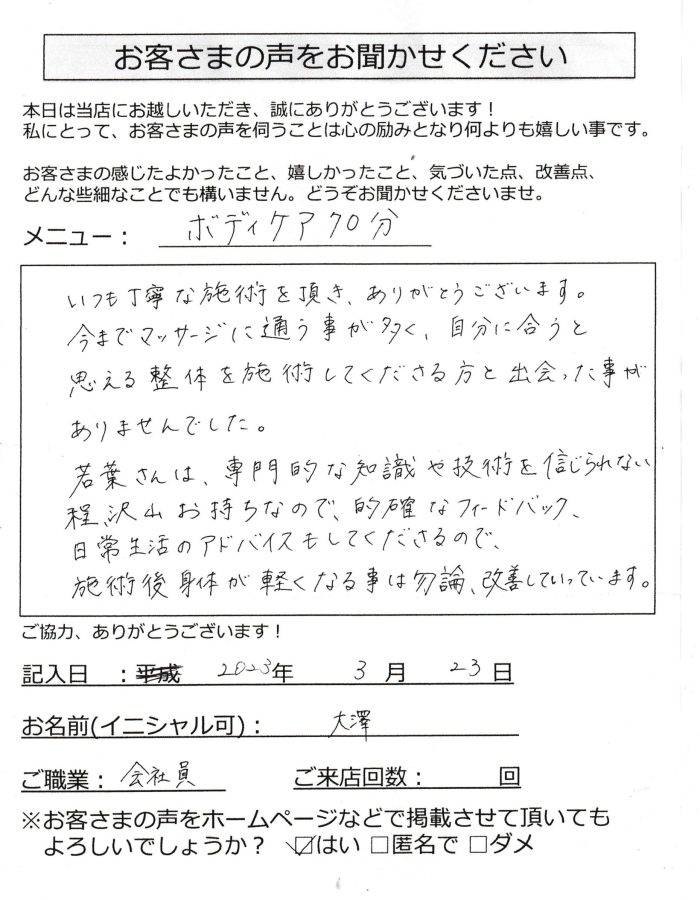 お客さまの声をお聞かせください
本日は当店にお越しいただき、誠にありがとうございます！
私にとって、お客さまの声を伺うことは心の励みとなり何よりも嬉しい事です。
お客さまの感じたよかったこと、嬉しかったこと、気づいた点、改善点、
どんな些細なことでも構いません。どうぞお聞かせくださいませ。
メニュー： ボディケア70分
いつも丁寧な施術を頂き、ありがとうございます。
今までマッサージに通う事が多く、自分に合うと
思える整体を施術してくださる方と出会った事が
ありませんでした。
若葉さんは、専門的な知識や技術を信じられない
程、沢山お持ちなので、的確なフィードバック、
日常生活のアドバイスもしてくださるので、
施術後身体が軽くなる事は勿論、改善していっています。
ご協力、ありがとうございます！
記入日 ：平成 2023年 3月 23日
お名前(イニシャル可)： 大澤
ご職業： 会社員 ご来店回数： 回
※お客さまの声をホームページなどで掲載させて頂いても
よろしいでしょうか？ ☑はい □匿名で □ダメ